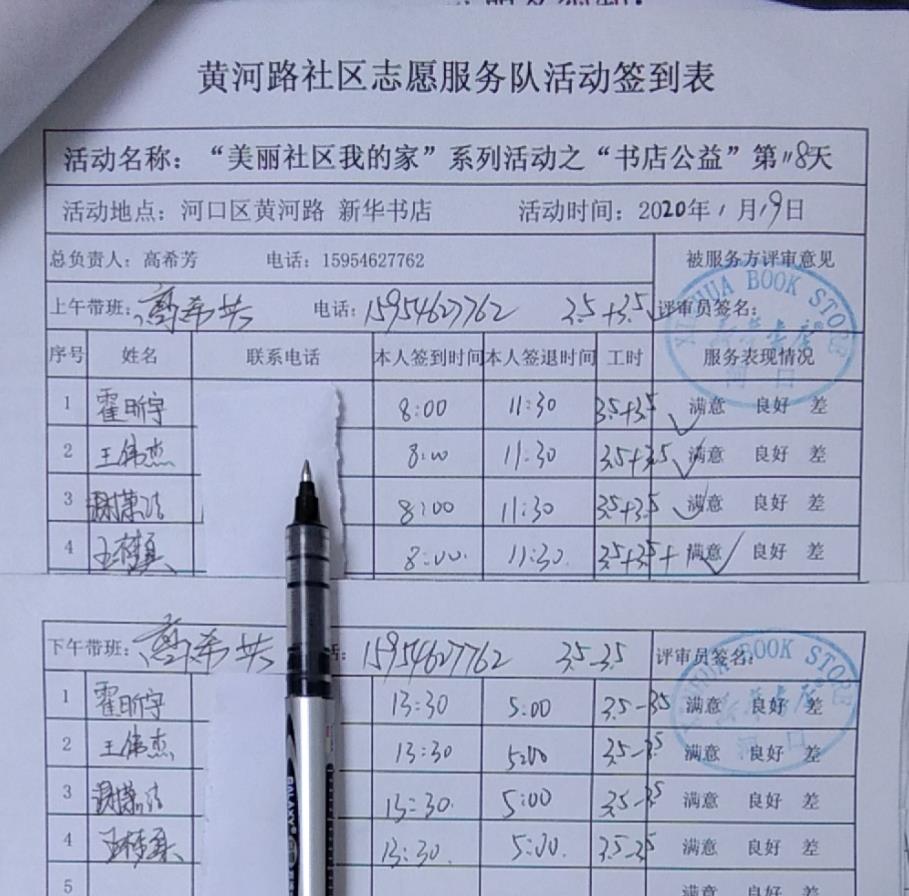 黄河路社区志愿服务队活动签到表
活动名称：“美丽社区我的家”系列活动之“书店公益”第118天
活动地点：河口区黄河路 新华书店 活动时间：2020年1月19日
总负责人：高希芳 电话：15954627762 被服务方评审意见
上午带班： 电话：15954627762 3.5+3.5 评审员签名：
XINHUA BOOK STORE
新华书店
河口
序号 姓名 联系电话 本人签到时间 本人签退时间 工时 服务表现情况
1 霍昕宇 8:00 11:30 3.5+3.5 满意 良好 差
2 王伟杰 8:00 11:30 3.5+3.5 满意 良好 差
3 8:00 11:30 3.5+3.5 满意 良好 差
4 8:00 11:30 3.5+3.5+ 满意 良好 差
下午带班： 15954627762 3.5-3.5 评审员签名：
XINHUA BOOK STORE
新华书店
河口
1 霍昕宇 13:30 5:00 3.5-3.5 满意 良好 差
2 王伟杰 13:30 5:00 3.5-3.5 满意 良好 差
3 13:30 5:00 3.5-3.5 满意 良好 差
4 13:30 5:00 3.5-3.5 满意 良好 差
5 满意 良好 差